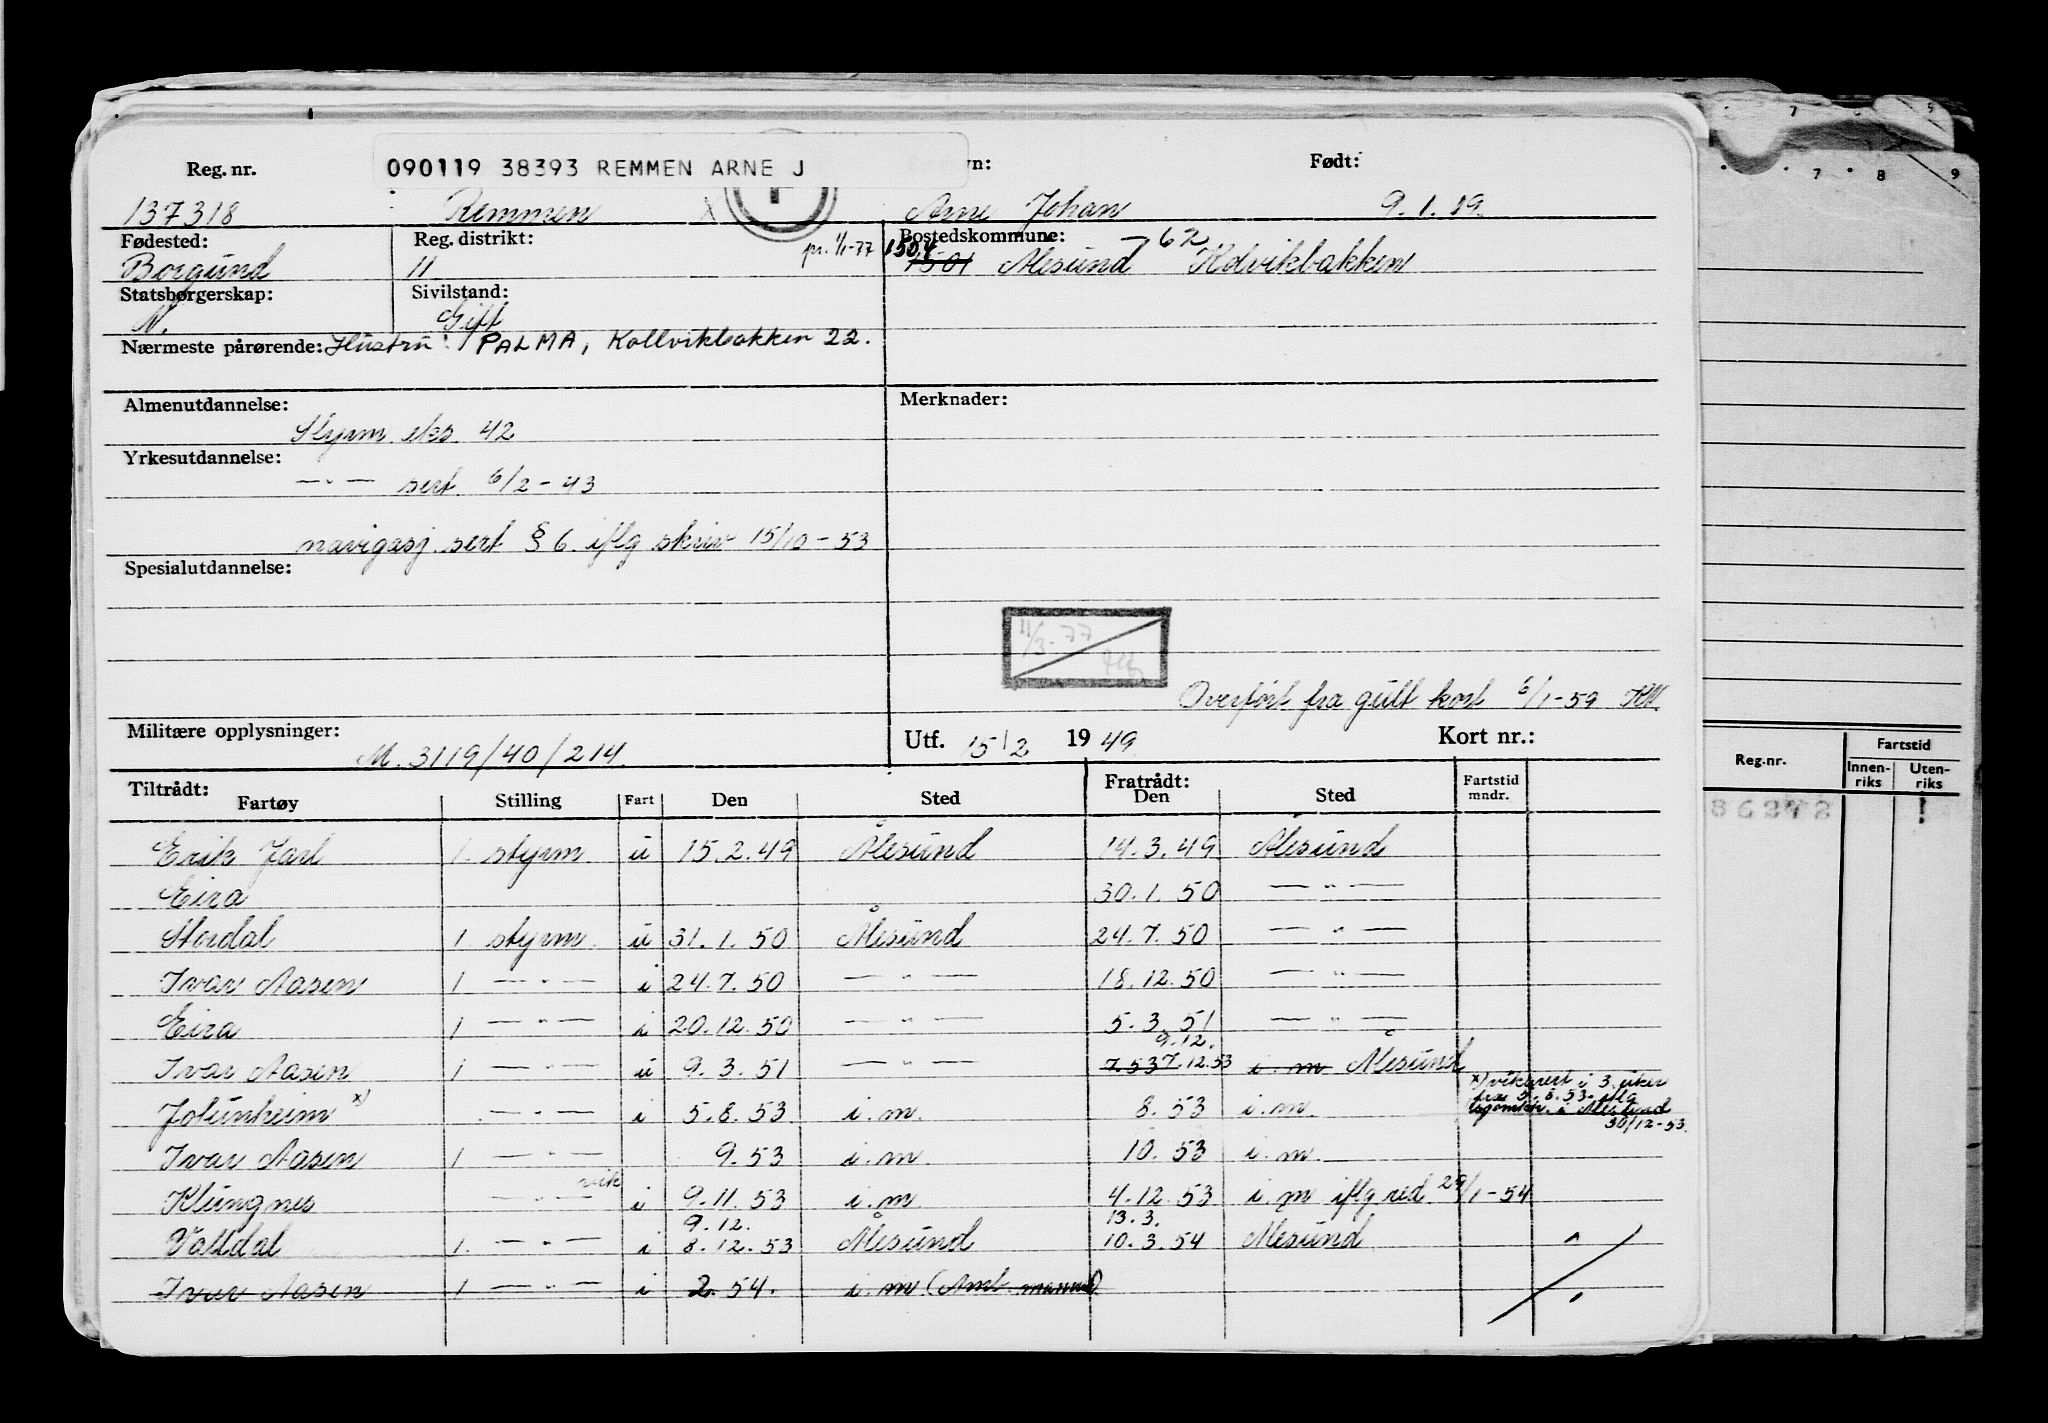 Reg. nr. 090119 38393 REMMEN ARNE J Født:
137318 Remmen Arne Johan 9.1.19.
Fødested: Reg. distrikt: pr. 1/1-77 1504 Bostedskommune: 62
Borgund 11 1501 Ålesund Kolvikbakken
Statsbørgerskap: Sivilstand:
N. Gift
Nærmeste pårørende: Hustru: PALMA, Kollvikbakken 22.
Almenutdannelse: Merknader:
Styrm eks. 42
Yrkesutdannelse:
— " — sert. 6/2-43
navigasj. sert § 6. iflg skriv 15/10-53
Spesialutdannelse:
11/3-77
Overført fra gult kort 6/1-59
Militære opplysninger: Utf. 15/2 1949 Kort nr.:
M. 3119/40/214.
Tiltrådt: Fratrådt:
Fartøy Stilling Fart Den Sted Den Sted Fartstid mndr.
Erik Jarl 1. styrm u 15.2.49 Ålesund 14.3.49 Ålesund
Eira 30.1.50 — " —
Stordal 1 styrm. u 31.1.50 Ålesund 24.7.50 — " —
Ivar Aasen 1 — " — i 24.7.50 — " — 18.12.50 — " —
Eira 1 — " — i 20.12.50 — " — 5.3.51 — " —
9.12.
Ivar Aasen 1 — " — u 9.3.51 — " — 7.53 7.12.53 i. m Ålesund
x) vikariert i 3 uker
fra 5.8.53. iflg
Jotunheim x) — " — i 5.8.53 i. m. 8.53 i. m. i Ålesund
30/12-53.
Ivar Aasen 1 — " — 9.53 i. m. 10.53 i. m.
vik
Klungnes — " — i 9.11.53 i. m. 4.12.53 i. m iflg red 29/1-54
9.12. 13.3.
Valldal 1. — " — i 8.12.53 Ålesund 10.3.54 Ålesund
Ivar Aasen 1 — " — i 2.54. i. m
Reg.nr. Fartstid
Innen-riks Uten-riks
86272
7 8 9